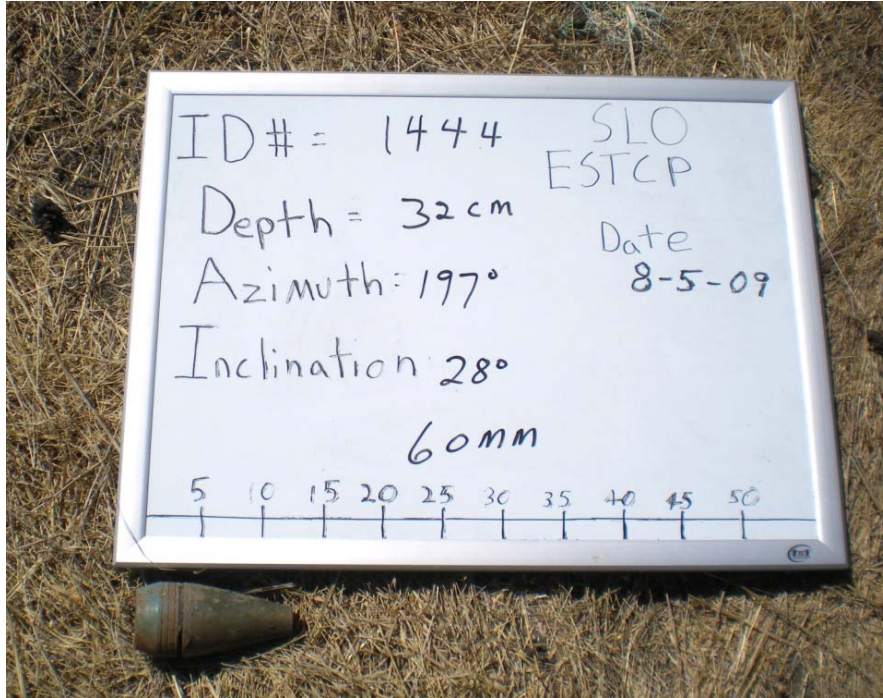 ID# = 1444
SLO
ESTCP
Depth = 32 cm
Date
Azimuth: 197°
8-5-09
Inclination 28°
60mm
5 10 15 20 25 30 35 40 45 50